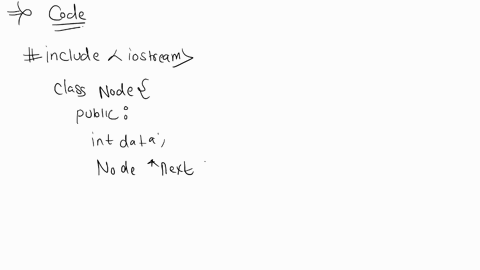 ⇒ Code
#include <iostream>
class Node{
public:
int data;
Node *next